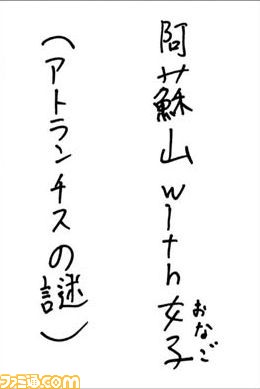 阿蘇山with女子
おなご
(アトランチスの謎)
ファミ通.com